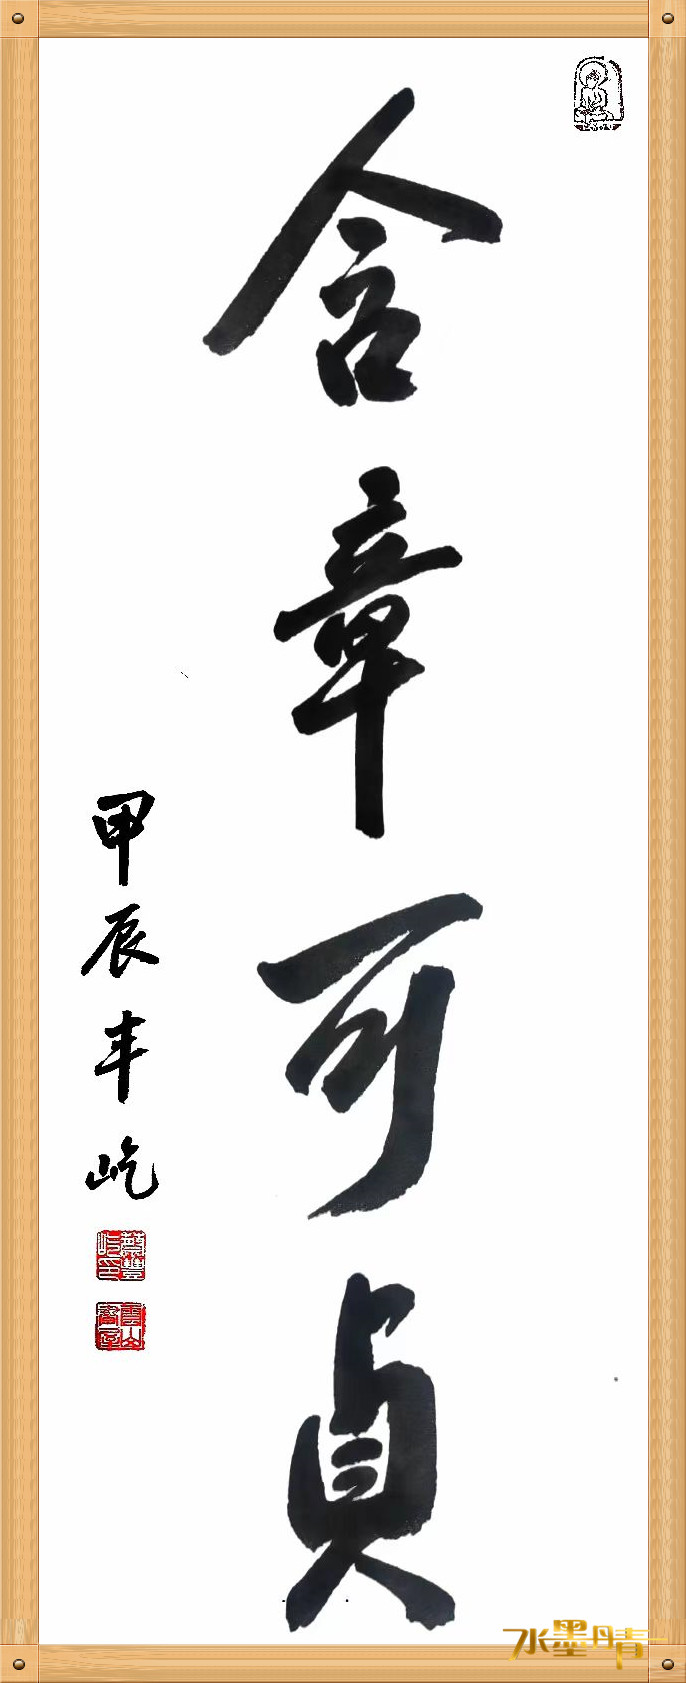 含章可贞
甲辰丰屹
水墨丹青